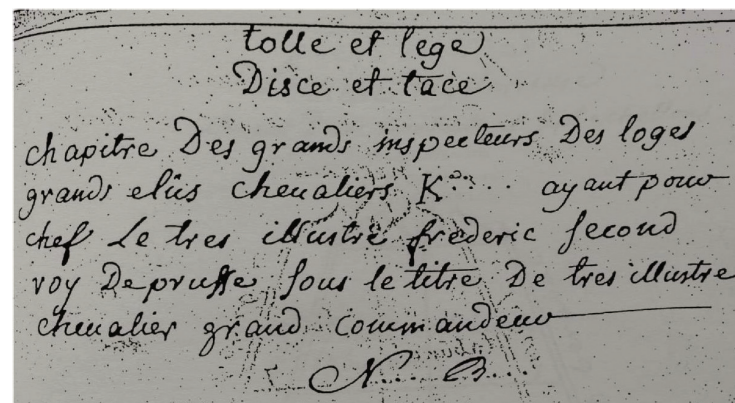 tolle et lege
Disce et tace
chapitre Des grands inspecteurs Des loges
grands elüs chevaliers K^D∴ .. ayant pour
chef Le tres illustre frederic second
roy De prusse sous le titre De tres illustre
chevalier grand commandeur
N... B...